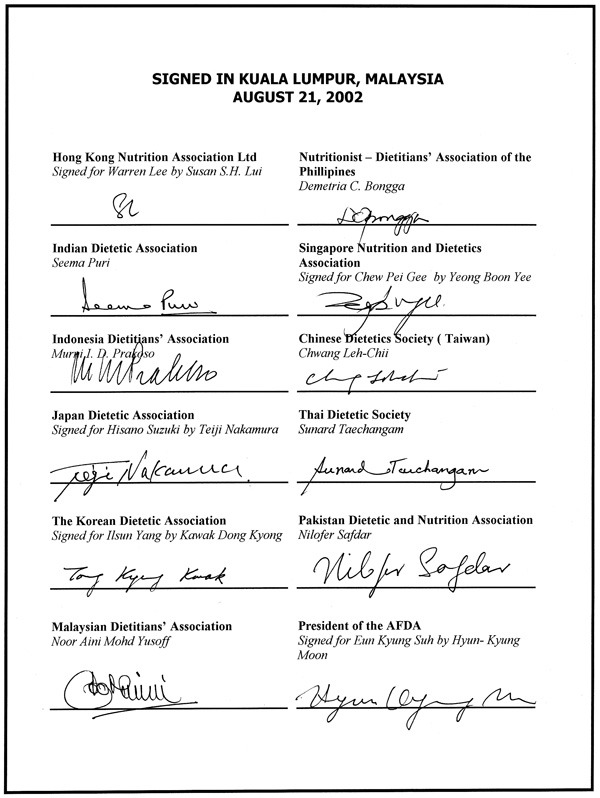 SIGNED IN KUALA LUMPUR, MALAYSIA
AUGUST 21, 2002
Hong Kong Nutrition Association Ltd
Signed for Warren Lee by Susan S.H. Lui
SL
Indian Dietetic Association
Seema Puri
Seema Puri
Indonesia Dietitians' Association
Murni I. D. Prakoso
Japan Dietetic Association
Signed for Hisano Suzuki by Teiji Nakamura
Teiji Nakamura
The Korean Dietetic Association
Signed for Ilsun Yang by Kawak Dong Kyong
Tong Kyung Kwak
Malaysian Dietitians' Association
Noor Aini Mohd Yusoff
Nutritionist – Dietitians' Association of the
Phillipines
Demetria C. Bongga
DCBongga
Singapore Nutrition and Dietetics
Association
Signed for Chew Pei Gee by Yeong Boon Yee
Chinese Dietetics Society ( Taiwan)
Chwang Leh-Chii
Thai Dietetic Society
Sunard Taechangam
Sunard Taechangam
Pakistan Dietetic and Nutrition Association
Nilofer Safdar
Nilofer Safdar
President of the AFDA
Signed for Eun Kyung Suh by Hyun- Kyung
Moon